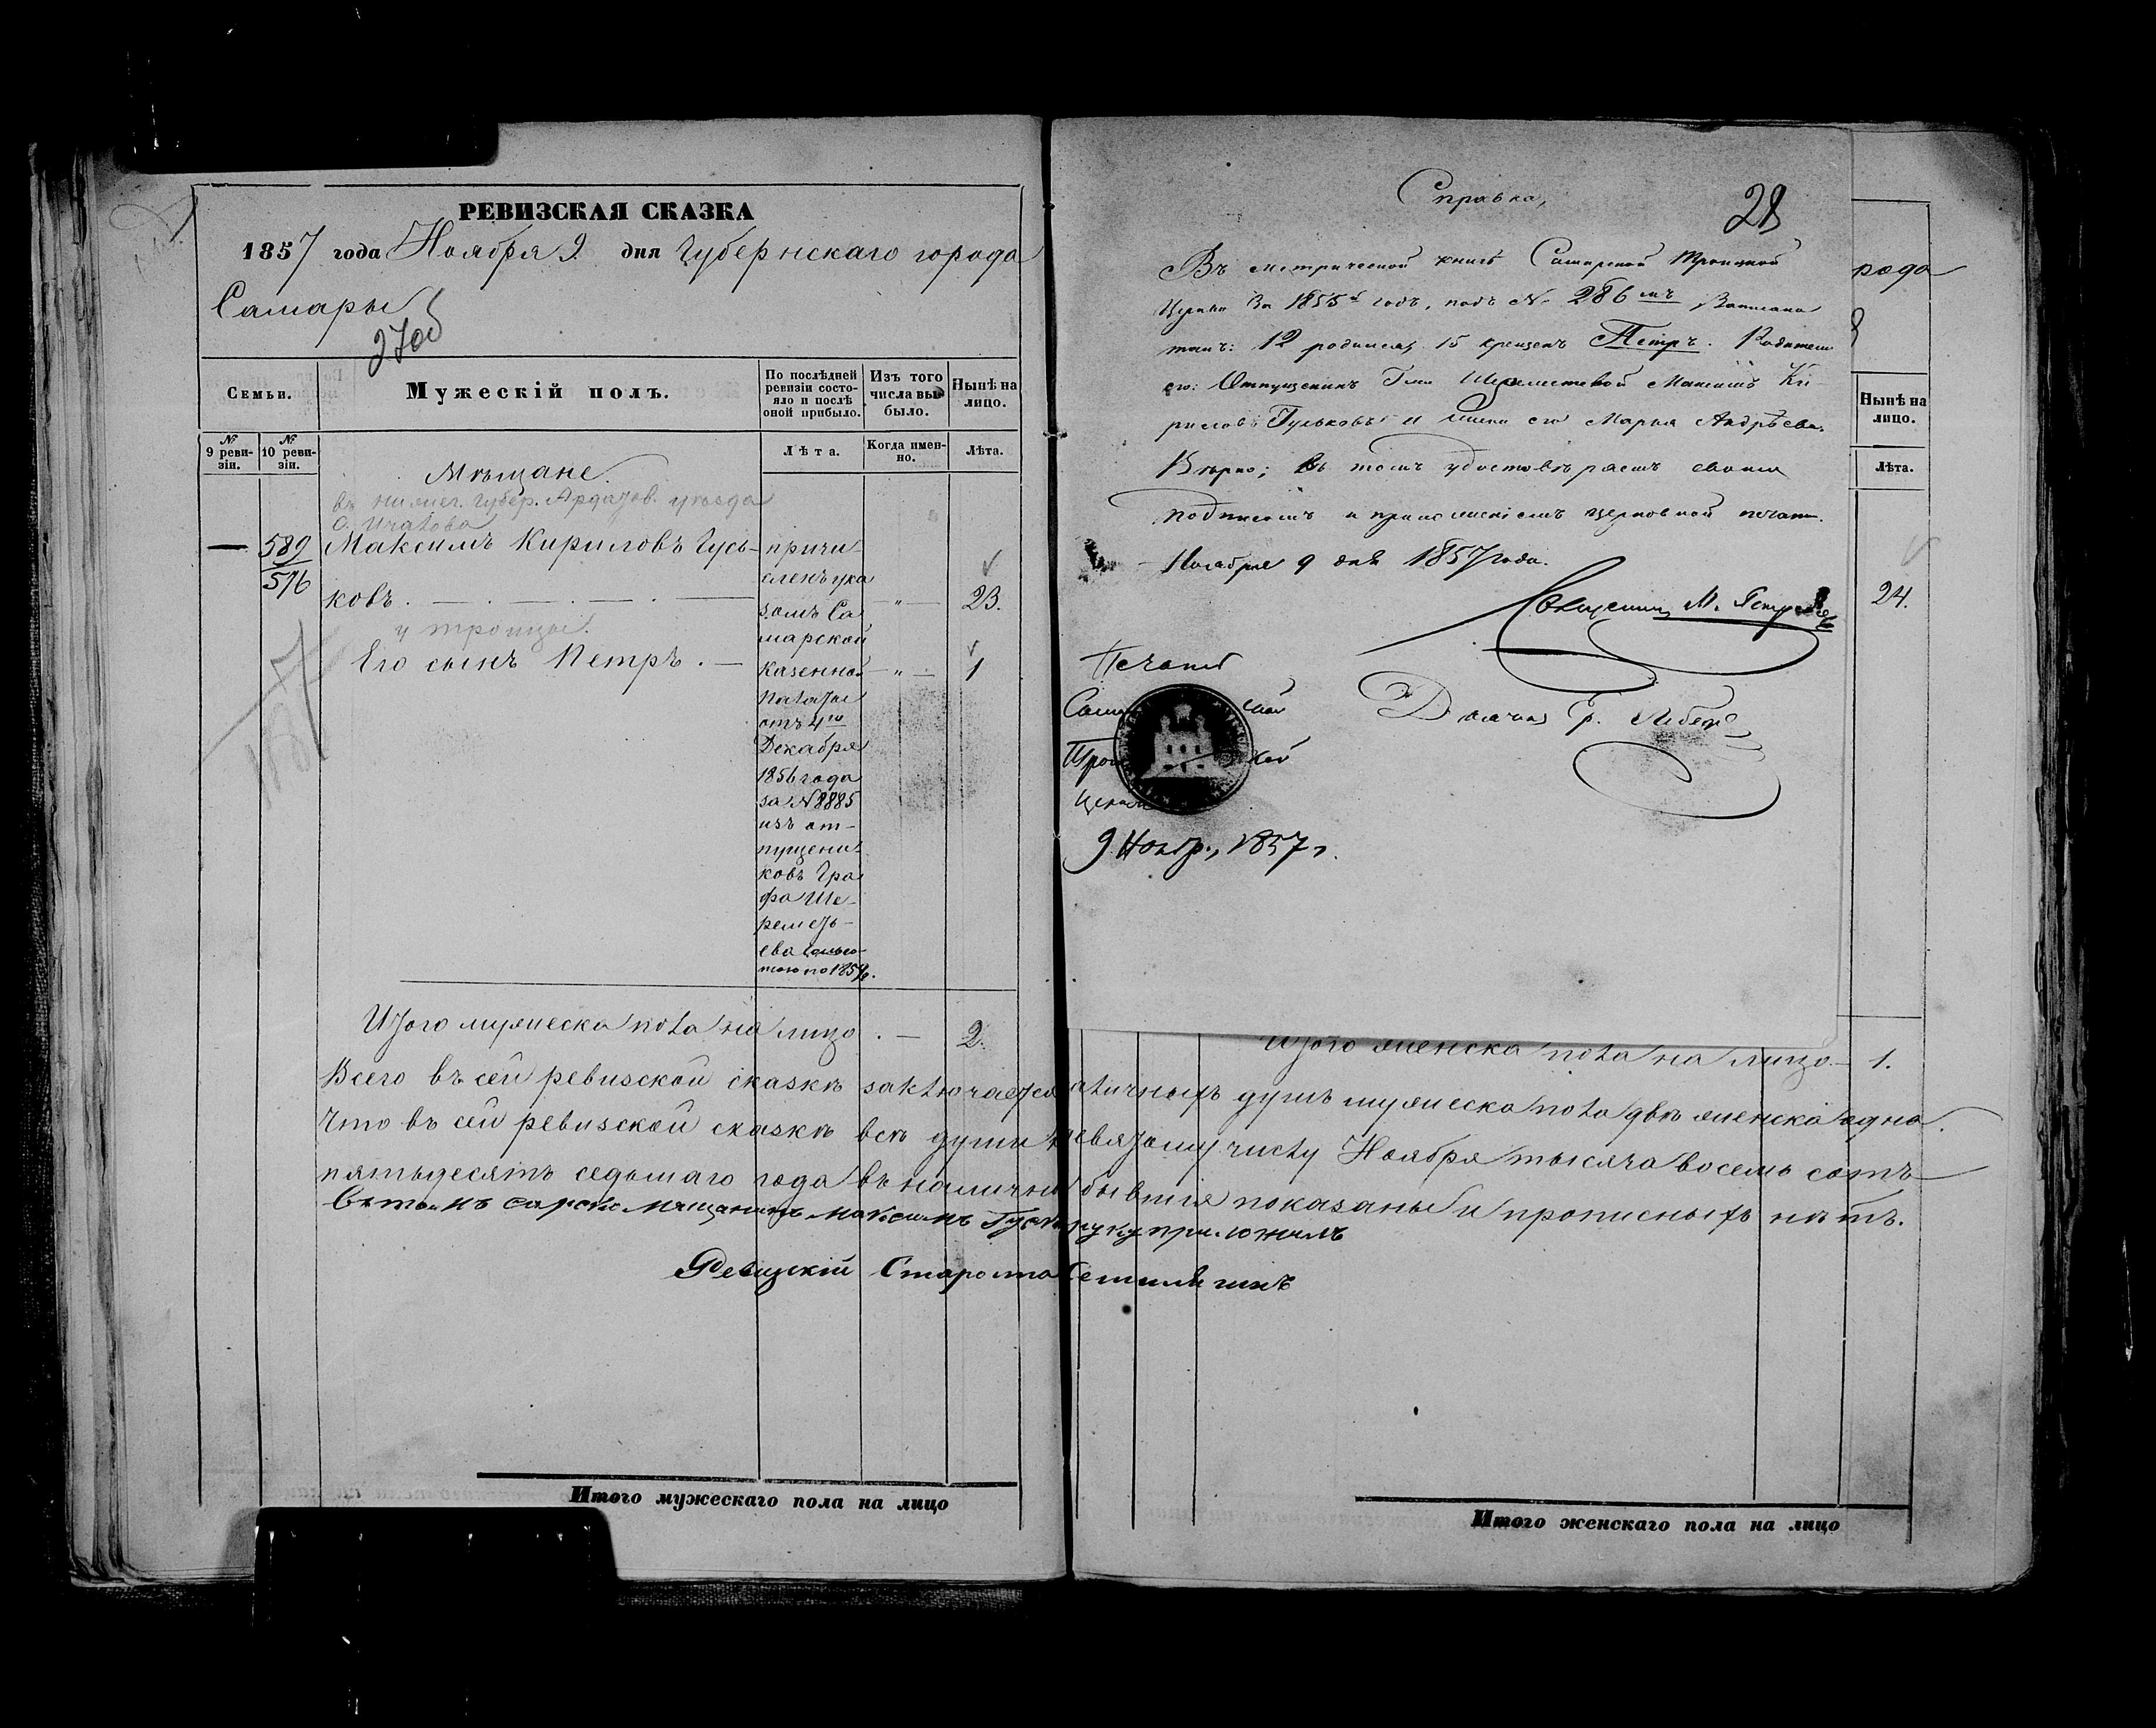 РЕВИЗСКАЯ СКАЗКА
1857 года Ноября 9. дня Губернскаго города
Самары
270б
Семьи.
Мужескій полъ.
По послѣдней ревизіи состояло и послѣ оной прибыло.
Изъ того числа выбыло.
Нынѣ на лицо.
№ 9 ревизіи.
№ 10 ревизіи.
Лѣта.
Когда именно.
Лѣта.
Мѣщане.
въ нижег. губер. Ардатов. уѣзда
с.
— 589 Максимъ Кириловъ Гусь-
576
ковъ. 23.
у троицы.
Его сынъ Петръ. — 1
1857
причи-
сленъ ука
зомъ Са
марской
казенной
палаты
отъ 4го
Декабря
1856 года
за № 8885
изъ от-
пущени-
ковъ Гра
фа Ше-
реметь-
ева
Итого мужеска пола на лицо . — 2.
Всего въ сей ревизской сказкѣ заключается
что въ сей ревизской сказкѣ всѣ души
пятьдесятъ седьмаго года въ
мещанинъ максимъ Гуськ
Ревизскій Староста
Итого мужескаго пола на лицо
Справка,
28
Въ метрической книгѣ Самарской Троицкой
Церкви за 1855й годъ, подъ № 286мъ записано
такъ: 12 родился, 15 крещенъ Петръ. Родители
его: Отпущенникъ Шереметевой Максимъ Ки-
риловъ Гуськовъ и жена его Марья Андрѣева.
Вѣрно; въ томъ удостовѣряемъ своимъ
подписомъ и приложеніемъ церковной печати.
Ноября 9 дня 1857 года.
Священникъ М.
Печать
Сам ской
Трои кой
Церкви
9 Ноябр., 1857 г.
рода
Нынѣ на лицо.
Лѣта.
24.
Итого женска пола на лицо — 1.
аличныхъ душъ мужеска пола двѣ женска одна.
девятому числу Ноября тысяча восемь сотъ
бывшія показаны и прописныхъ нѣтъ.
руку приложилъ
Итого женскаго пола на лицо